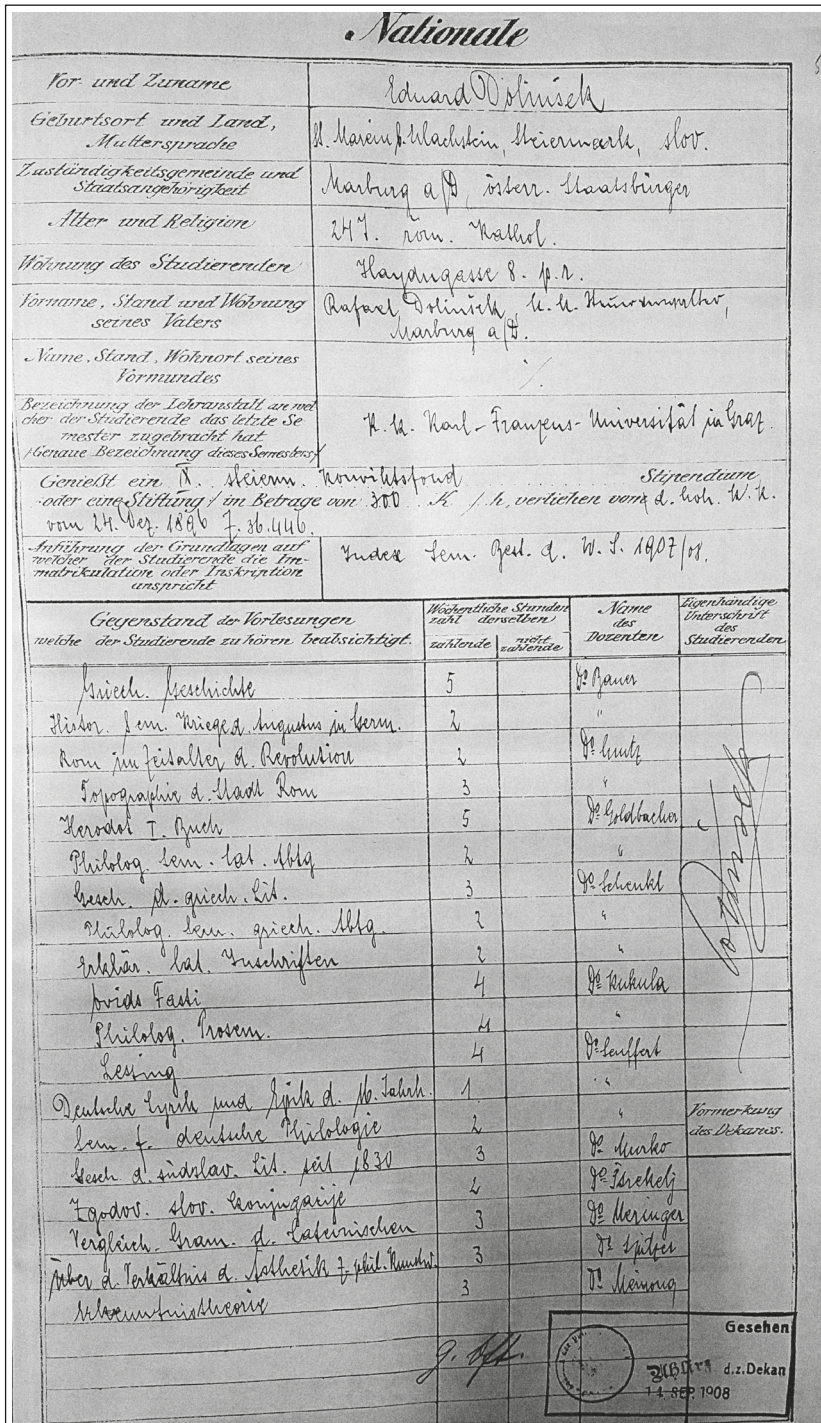 Nationale
Vor- und Zuname
Eduard Dolinšek
Geburtsort und Land,
Muttersprache
St. Marein b. Steiermark, slov.
Zuständigkeitsgemeinde und
Staatsangehörigkeit
Marburg a/D, österr. Staatsbürger
Alter und Religion
24 J. röm. Kathol.
Wohnung des Studierenden
Haydngasse 8. p. r.
Vorname, Stand und Wohnung
seines Vaters
Rafael Dolinšek, k. k.
Marburg a/D.
Name, Stand, Wohnort seines
Vormundes
Bezeichnung der Lehranstalt an wel
cher der Studierende das letzte Se
mester zugebracht hat
/Genaue Bezeichnung dieses Semesters/
K. k. Karl-Franzens-Universität in Graz.
Genießt ein IX. steierm. Konviktsfond Stipendium
/oder eine Stiftung/ im Betrage von 300 K /h, verliehen vom d. hoh. k. k.
vom 24. Dez. 1896 Z. 36.446.
Anführung der Grundlagen auf
welcher der Studierende die Im-
matrikulation oder Inskription
anspricht
Index Sem. Best. d. W. S. 1907/08.
Gegenstand der Vorlesungen
welche der Studierende zu hören beabsichtigt.
Wöchentliche Stunden
zahl derselben
zahlende
nicht zahlende
Name
des
Dozenten
Eigenhändige
Unterschrift
des
Studierenden
Griech. Geschichte 5 Dr Bauer
Histor. Sem. Kriege d. Augustus in Germ. 2 "
Rom im Zeitalter d. Revolution 2 Dr Cuntz
Topographie d. Stadt Rom 3 "
Herodot I. Buch 5 Dr Goldbacher
Philolog. Sem. lat. Abtg 2 "
Gesch. d. griech. Lit. 3 Dr Schenkl
Philolog. Sem. griech. Abtg. 2 "
Erklär. lat. Inschriften 2 "
Ovids Fasti 4 Dr Kukula
Philolog. Prosem. 4 "
Lessing 4 Dr Seuffert
Deutsche Lyrik und Epik d. 16. Jahrh. 1 "
Sem. f. deutsche Philologie 2 "
Vormerkung
des Dekans.
Gesch. d. südslav. Lit. seit 1830 3 Dr Murko
Zgodov. slov. konjugacije 2 Dr Štrekelj
Vergleich. Gram. d. Lateinischen 3 Dr Meringer
Über d. Verhältnis d. Ästhetik z. phil. Kunstw. 3 Dr Spitzer
Erkenntnistheorie 3 Dr Meinong
Dolinšek
Gesehen
d.z. Dekan
14. SEP. 1908